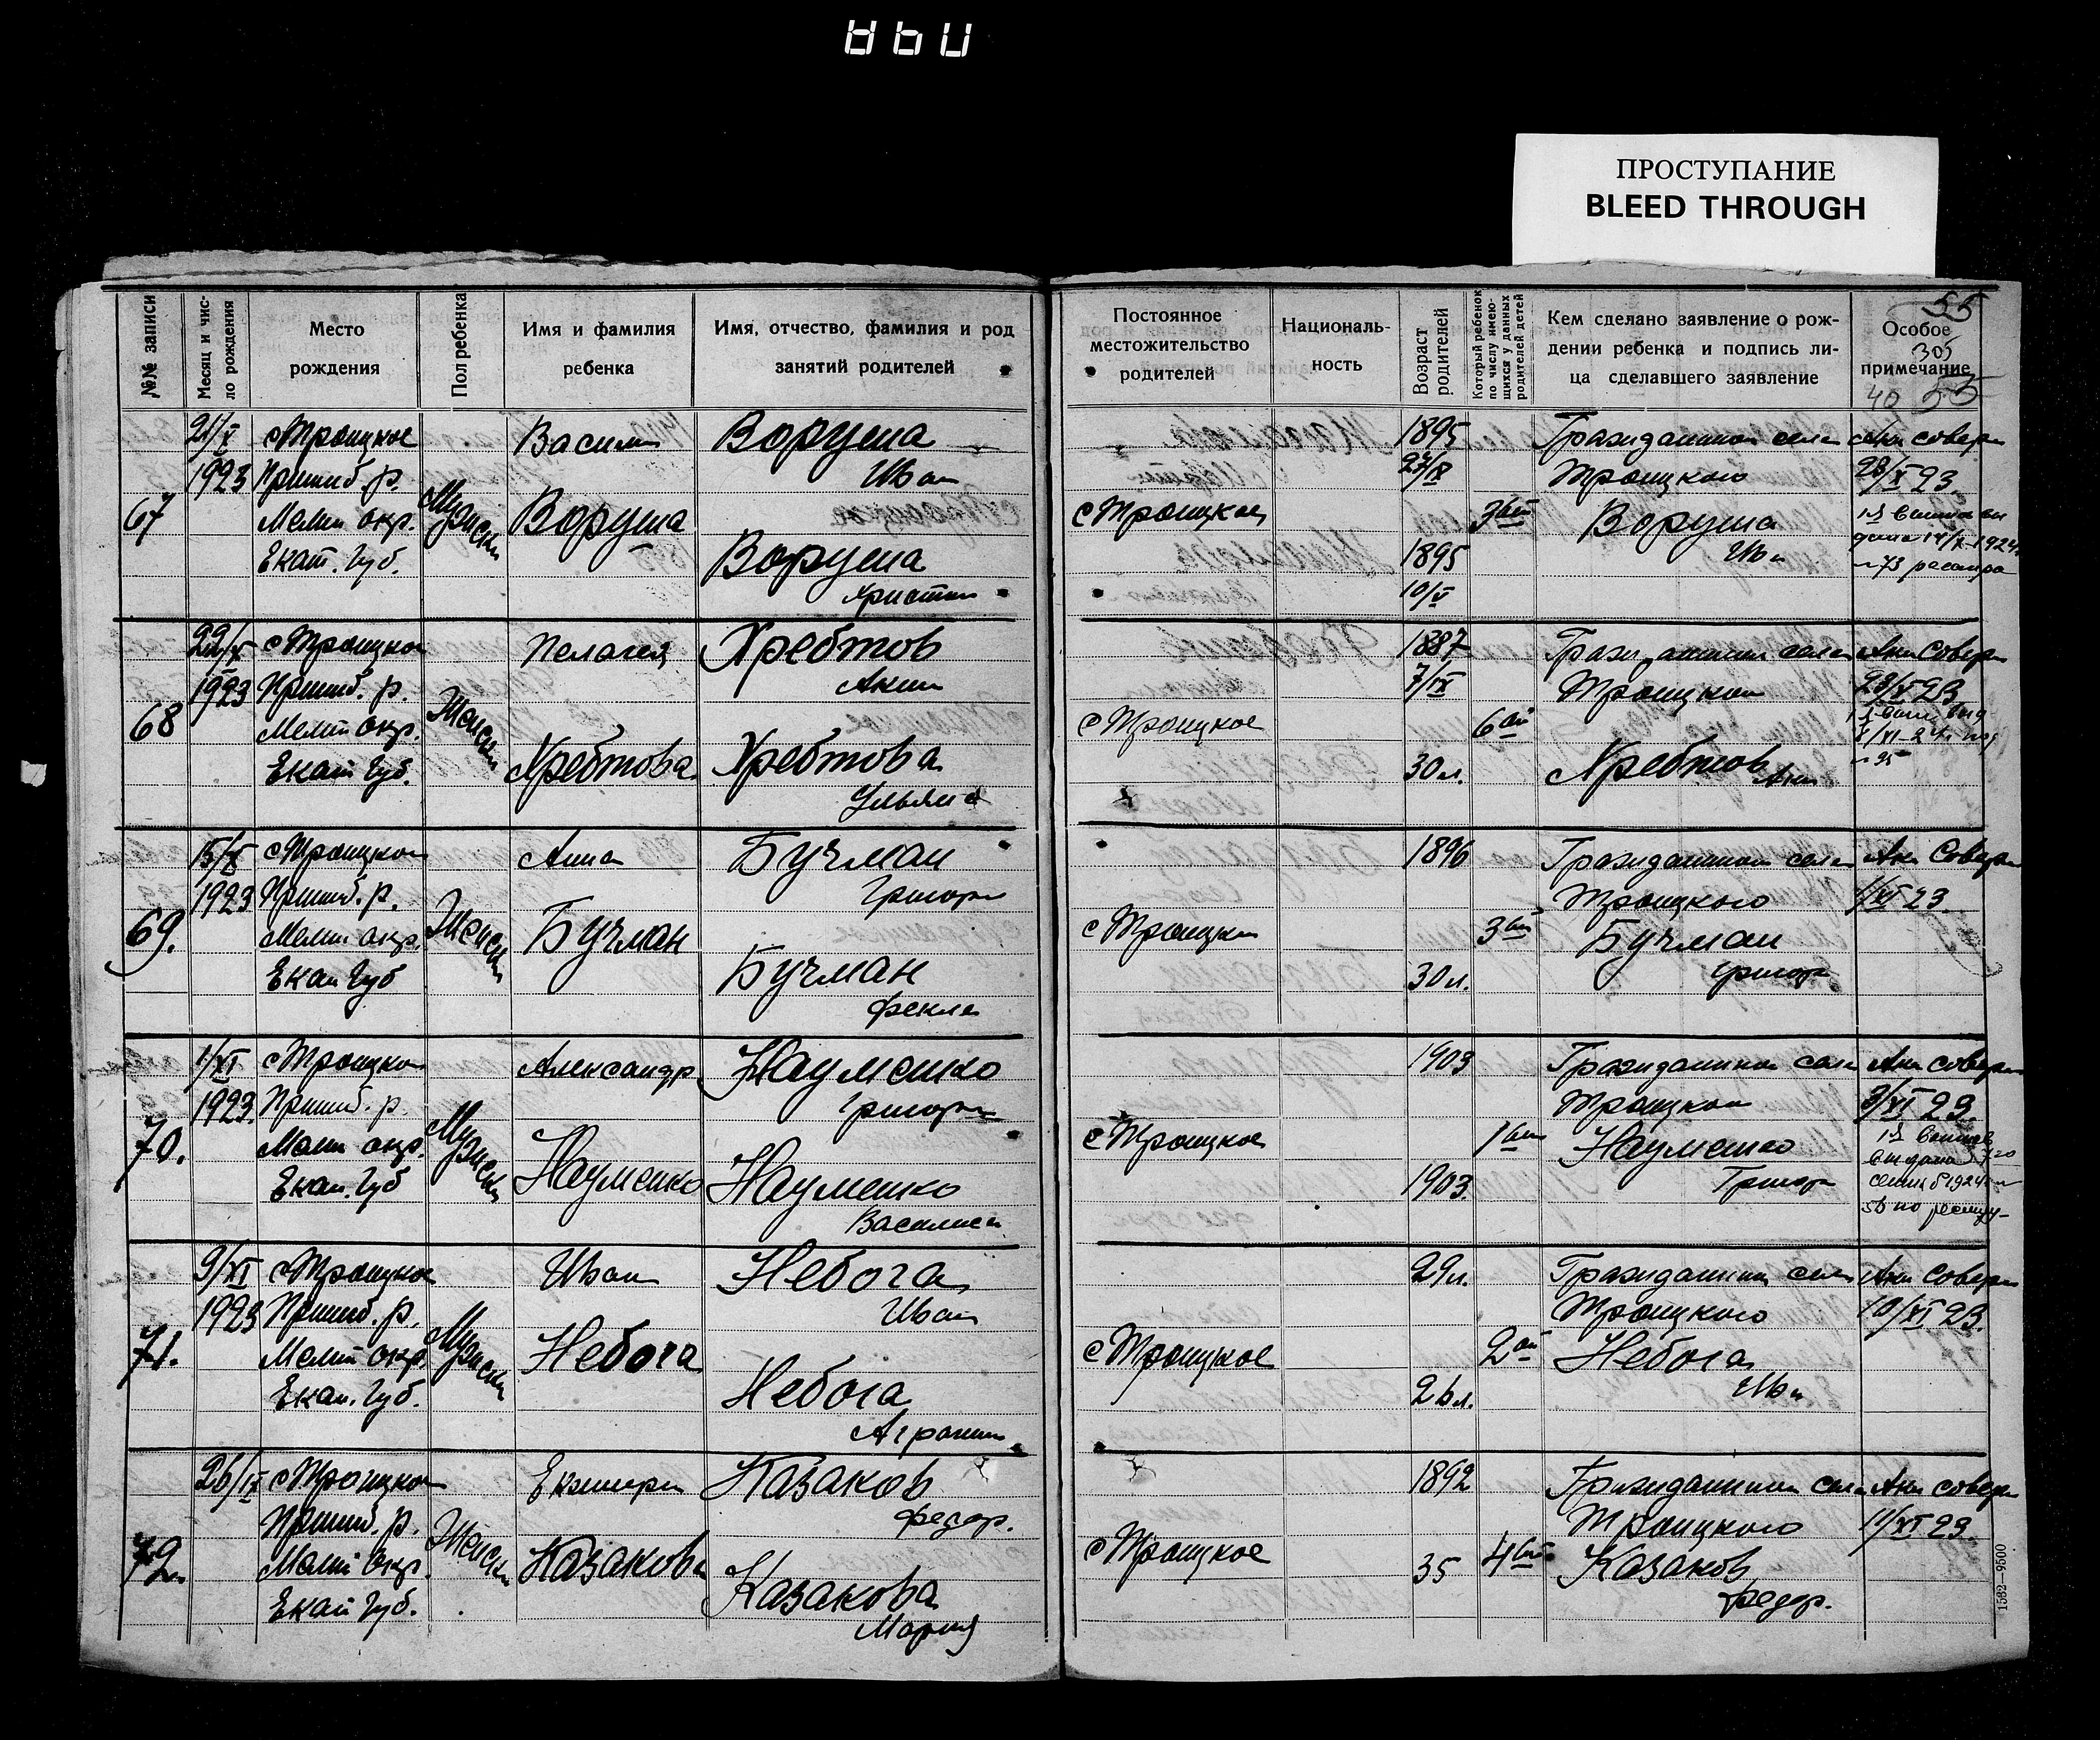 ПРОСТУПАНИЕ
BLEED THROUGH
№№ записи
Месяц и чис-
ло рождения
Место
рождения
Пол ребенка
Имя и фамилия
ребенка
Имя, отчество, фамилия и род
занятий родителей
Постоянное
местожительство
родителей
Националь-
ность
Возраст
родителей
Который ребенок
по числу имею-
щихся у данных
родителей детей
Кем сделано заявление о рож-
дении ребенка и подпись ли-
ца сделавшего заявление
Особое
примечание
55
305
40 55
67
21/X
1923
с Троицкое
Пришиб. р.
Мелит окр.
Екат. Губ.
Мужски
Васили
Воруша
Воруша
Иван
Воруша
Христин
с Троицкое
1895
27/IX
1895
10/V
3ий
Гражданином села
Троицкого
Воруша
Ив
Акт соверш
23/X 23
68
22/X
1923
с Троицкое
Пришиб. р.
Мелит окр.
Екат Губ.
Женски
Пелагея
Хребтова
Хребтов
Аким
Хребтова
Ульяна
с Троицкое
1887
7/IX
30 л.
6ой
Гражданином села
Троицкого
Хребтов
Аки
Акт Соверш
23/X 23
69.
15/X
1923
с Троицкое
Пришиб. р.
Мелит окр.
Екат Губ
Женски
Анна
Бучман
Бучман
Григори
Бучман
Фекла
с Троицкое
1896
30 л.
3ий
Гражданином села
Троицкого
Бучман
Григор
Акт Соверш
1/XI 23.
70.
1/XI
1923.
с Троицкое
Пришиб. р.
Мелит окр.
Екат. Губ
Мужски
Александр
Науменко
Науменко
Григори
Науменко
Василиса
с Троицкое
1903
1903
1ый
Гражданином села
Троицкого
Науменко
Григор
Акт соверш
3/XI 23.
71.
9/XI
1923
с Троицкое
Пришиб. р.
Мелит окр.
Екат. Губ.
Мужски
Иван
Небога
Небога
Иван
Небога
с Троицкое
29 л.
26 л.
2ой
Гражданином села
Троицкого
Небога
Ив
Акт Соверш
10/XI 23.
72.
26/IX
с Троицкое
Пришиб. р.
Мелит окр.
Екат Губ.
Женски
Екатери
Казакова
Казаков
Федор.
Казакова
Мария
с Троицкое
1892
35
4ый
Гражданином села
Троицкого
Казаков
Федор.
Акт соверш
11/XI 23.
1582—9500